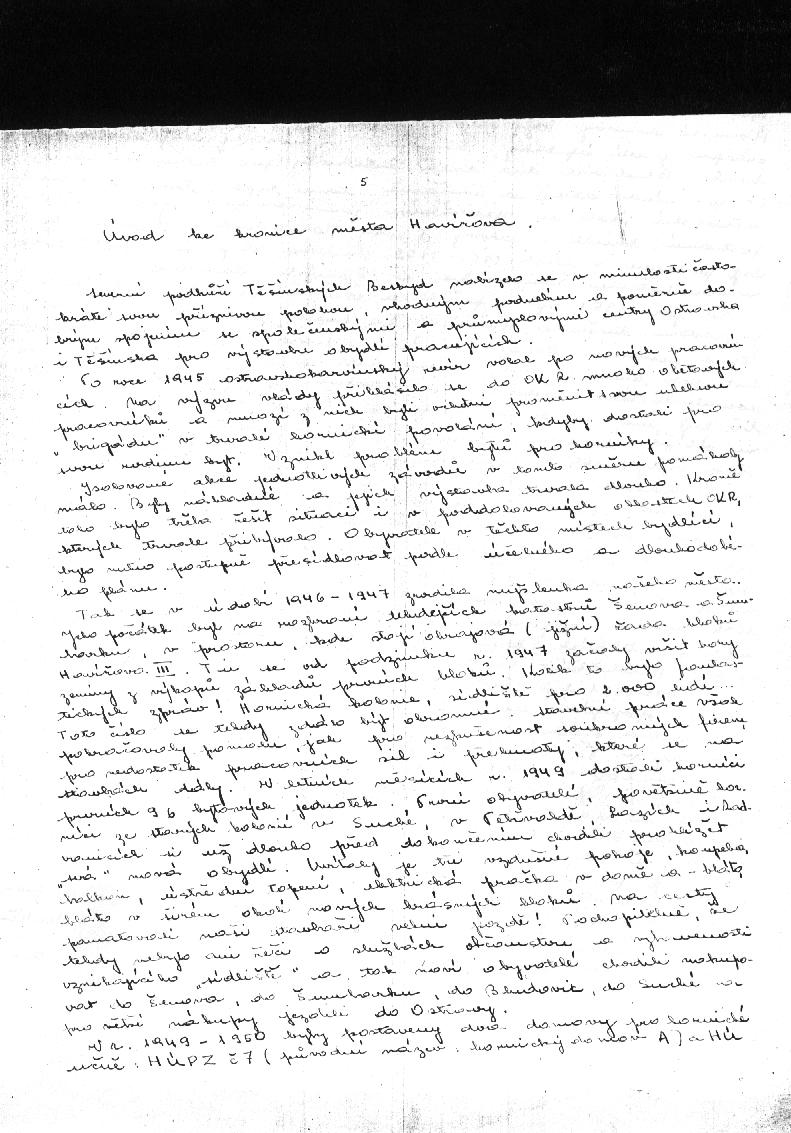 5
Úvod ke kronice města Havířova.
Severní podhůří Těšínských Beskyd nabízelo se v minulosti často-
kráte svou příznivou polohou, vhodným podnebím a poměrně do-
brým spojením se společenskými a průmyslovými centry Ostravska
i Těšínska pro výstavbu obydlí pracujících.
Po roce 1945 ostravskokarvinský revír volal po nových pracovní-
cích. Na výzvu vlády přihlásilo se do OKR mnoho obětavých
pracovníků a mnozí z nich byli vhodní proměnit svou
"brigádu" v trvalé hornické povolání, kdyby dostali pro
svou rodinu byt. Vznikl problém bytů pro horníky.
Isolované akce jednotlivých závodů v tomto směru pomáhaly
málo. Byly nákladné a jejich výstavba trvala dlouho. Kromě
toho bylo třeba řešit situaci i v poddolovaných oblastech OKR,
kterých trvale přibývalo. Obyvatele v těchto místech bydlící,
bylo nutno postupně přesídlovat podle účelného a dlouhodobé-
ho plánu.
Tak se v údobí 1946-1947 zrodila myšlenka našeho města.
Jeho počátek byl na rozhraní tehdejších katastrů Šenova a Šum-
barku, v prostoru, kde stojí okrajová (jižní) řada bloků
Havířova III. Tu se od podzimku r. 1947 začaly vršit hory
zeminy z výkopů základů prvních bloků. Kolik to bylo fantas-
tických zpráv! Hornická kolonie, sídliště pro 2.000 lidí...
Toto číslo se tehdy zdálo být ohromné. Stavební práce však
pokračovaly pomalu, jak pro nezkušenost soukromých firem,
pro nedostatek pracovních sil i překážky, které se na
stavbách dály. V letních měsících r. 1949 dostali horníci
prvních 96 bytových jednotek. První obyvatelé, povětšině hor-
níci ze starých kolonií v Suché, v Petřvaldě, Lazích i Rad-
vanicích si už dlouho před dokončením chodili prohlížet
"svá" nová obydlí. Uvítaly je tu vzdušné pokoje, koupelna,
balkon, ústřední topení, elektrická pračka v domě a - bláto,
bláto v širém okolí nových krásných bloků. Na cesty
pamatovali naši stavbaři velmi pozdě! Pochopitelně, že
tehdy nebylo ani řeči o službách občanstvu a vybavenosti
vznikajícího "sídliště" a tak noví obyvatelé chodili nakupo-
vat do Šenova, do Šumbarku, do Bludovic, do Suché a
pro větší nákupy jezdili do Ostravy.
V r. 1949-1950 byly postaveny dva domovy pro hornické
učně: HÚPZ č 7 (původní název: hornický domov A) a HÚ